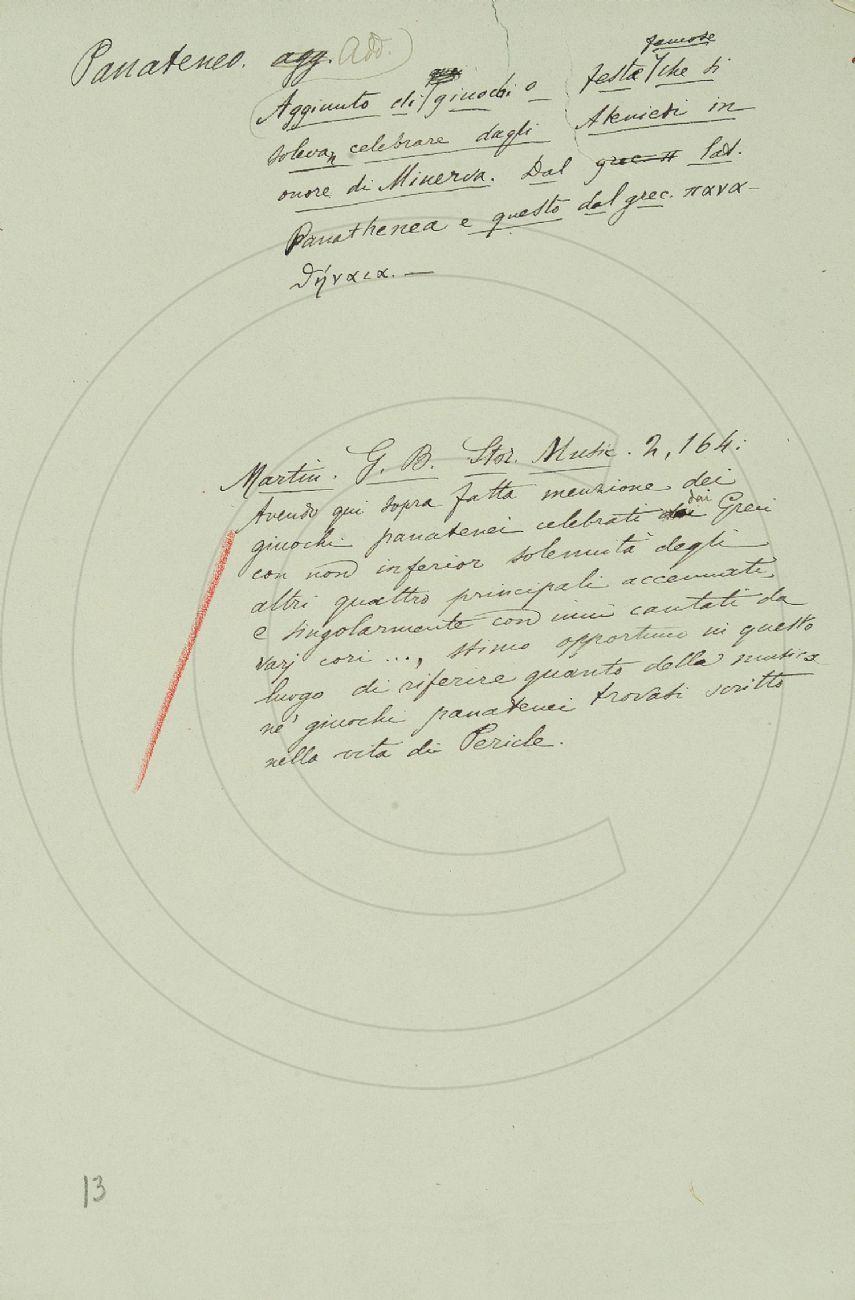 Panateneo. agg. Add.
Aggiunto di giuochi o feste famose che si
solevan celebrare dagli Ateniesi in
onore di Minerva. Dal grec. π lat.
Panathenea e questo dal grec. πανα-
θήναια. —
Martin. G. B. Stor. Music. 2, 164:
Avendo qui sopra fatta menzione dei
giuochi panatenei celebrati dai Greci
con non inferior solennità degli
altri quattro principali accennati,
e singolarmente con inni cantati da
varj cori ..., stimo opportuno in questo
luogo di riferire quanto della musica
ne' giuochi panatenei trovasi scritto
nella vita di Pericle.
13